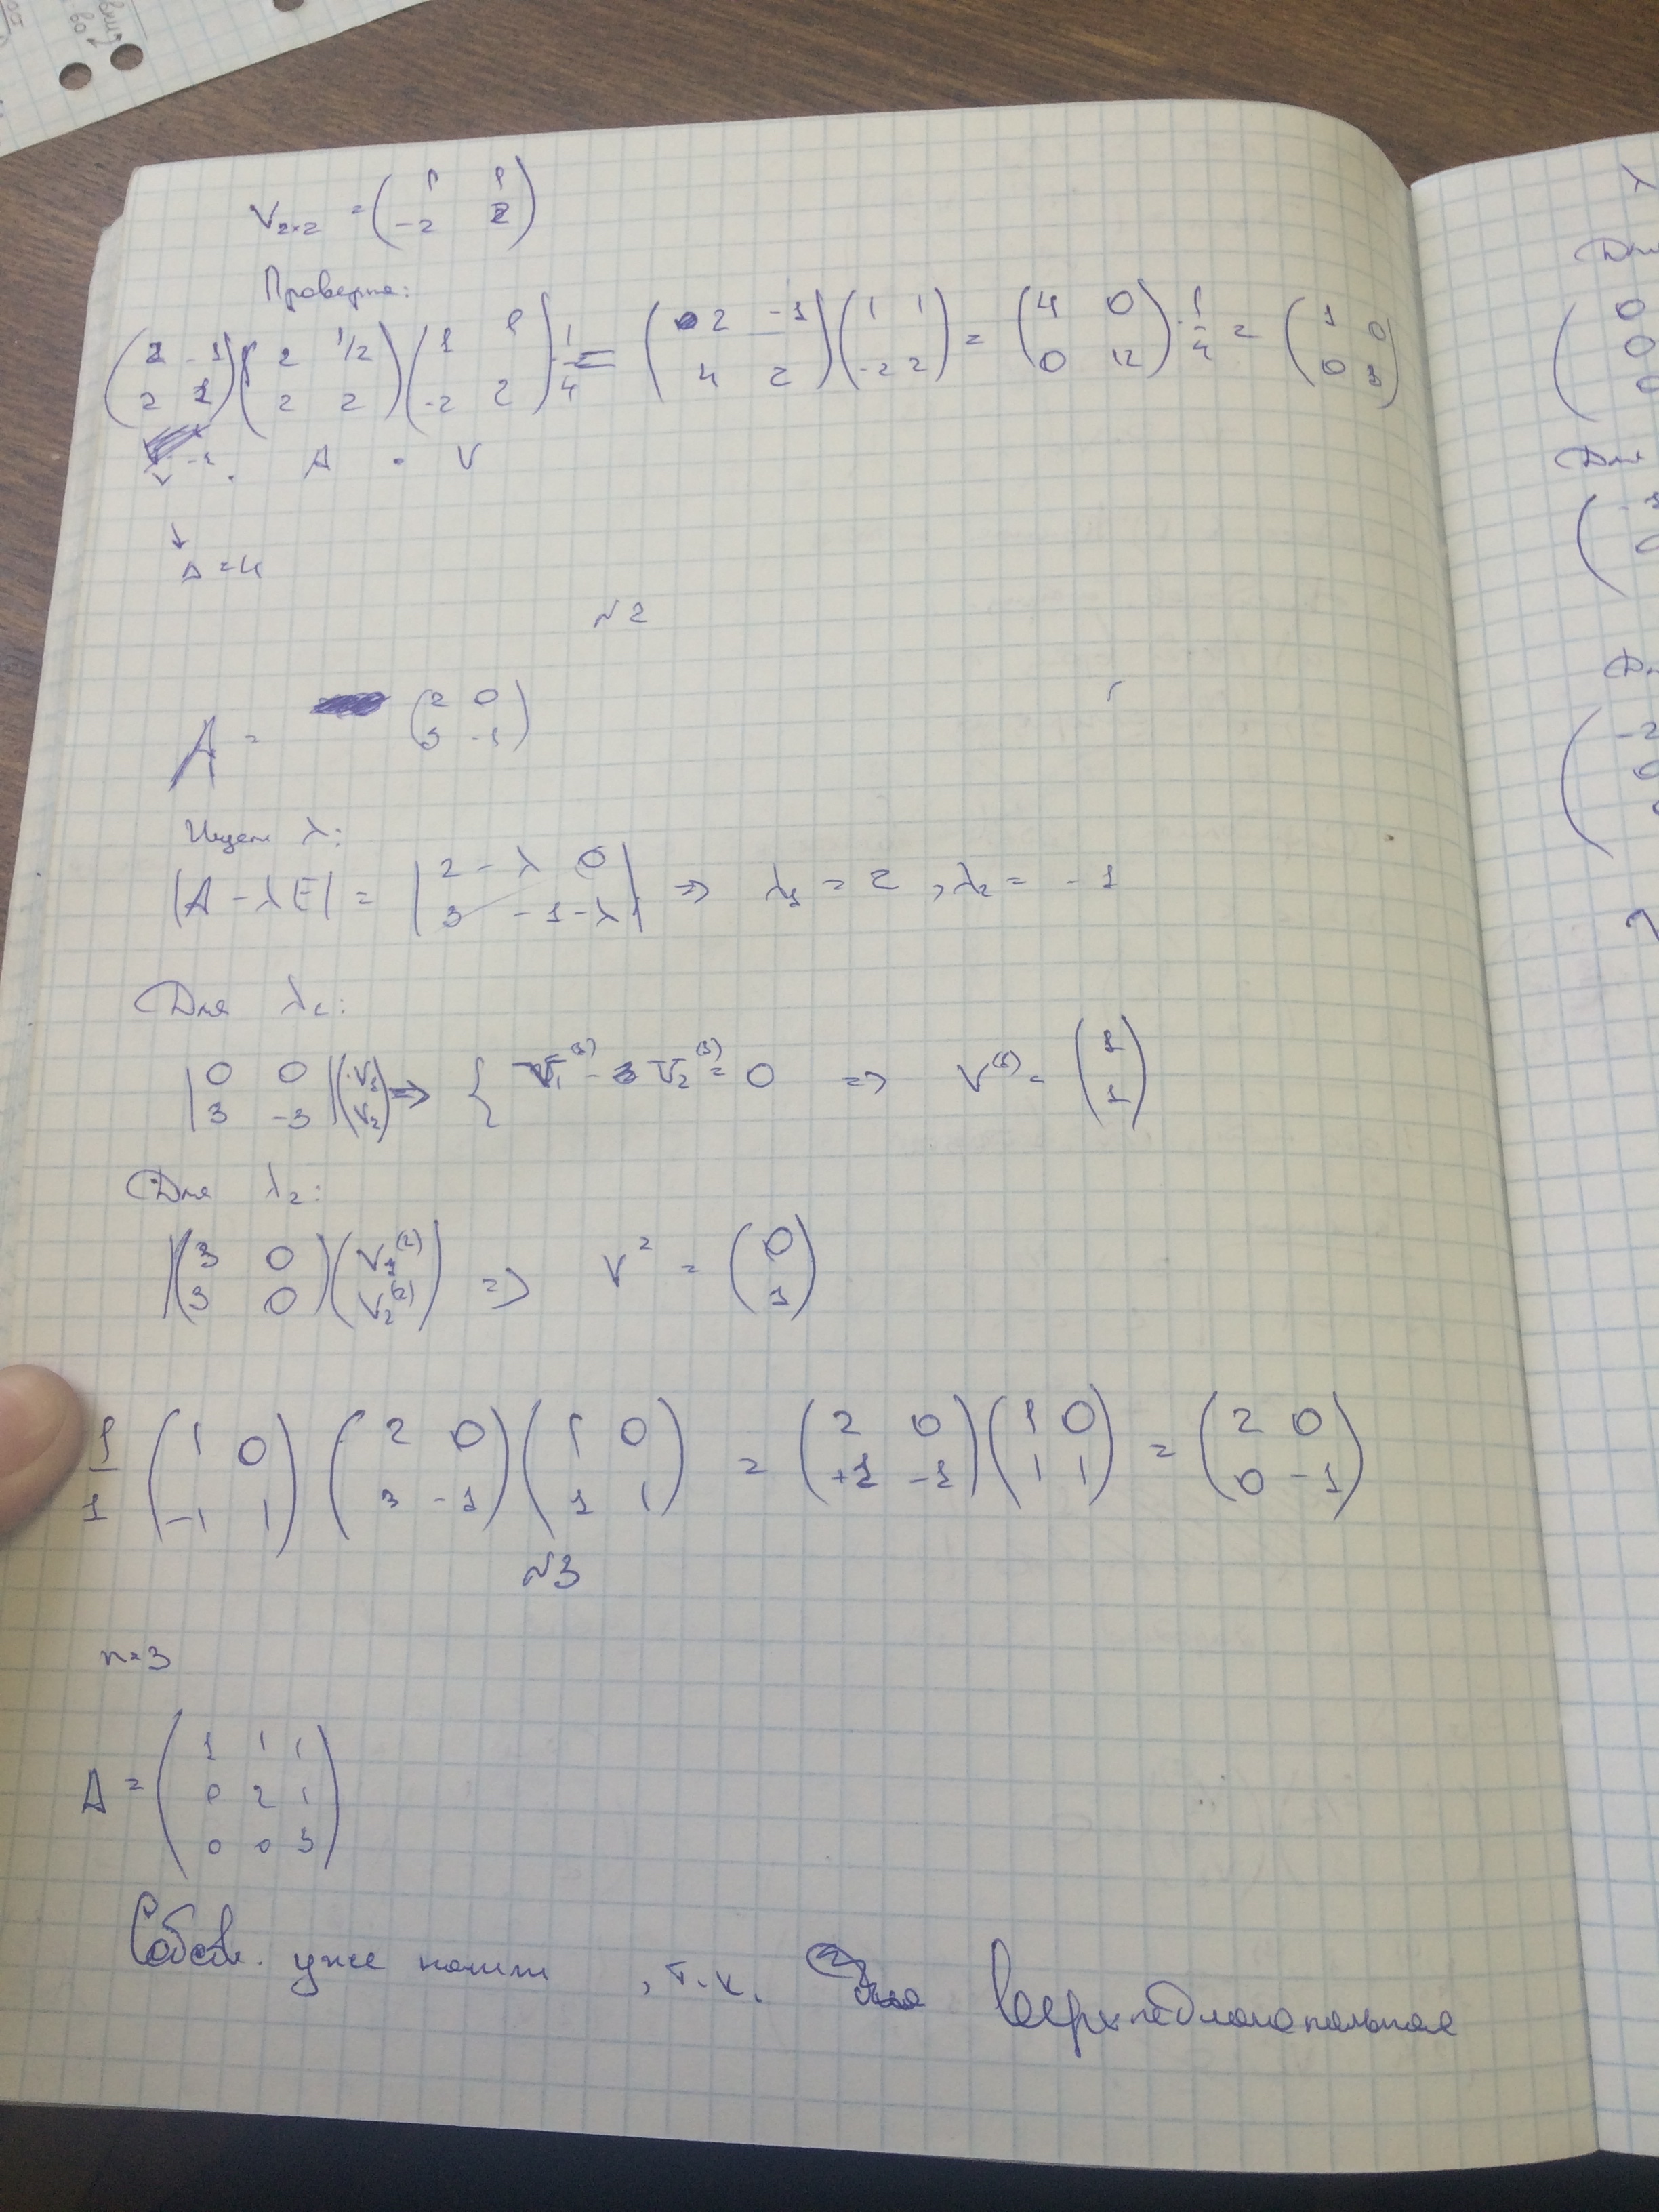 V₂ₓ₂ = ( 1 1 ; -2 2 )
Проверка:
( 2 -1 ; 2 1 ) ( 2 1/2 ; 2 2 ) ( 1 1 ; -2 2 ) 1/4 = ( 2 -1 ; 4 2 ) ( 1 1 ; -2 2 ) = ( 4 0 ; 0 12 ) · 1/4 = ( 1 0 ; 0 3 )
V⁻¹ · A · V
↓
Δ = 4
№2
A = ( 2 0 ; 3 -1 )
Ищем λ:
|A - λE| = | 2-λ 0 ; 3 -1-λ | => λ₁ = 2, λ₂ = -1
Для λ₁:
| 0 0 ; 3 -3 | ( V₁ ; V₂ ) => { V₁⁽¹⁾ - V₂⁽¹⁾ = 0 => V⁽¹⁾ = ( 1 ; 1 )
Для λ₂:
( 3 0 ; 3 0 ) ( V₁⁽²⁾ ; V₂⁽²⁾ ) => V² = ( 0 ; 1 )
1/1 ( 1 0 ; -1 1 ) ( 2 0 ; 3 -1 ) ( 1 0 ; 1 1 ) = ( 2 0 ; +1 -1 ) ( 1 0 ; 1 1 ) = ( 2 0 ; 0 -1 )
№3
n=3
A = ( 1 1 1 ; 0 2 1 ; 0 0 3 )
Собств. уже нашли, т.к.